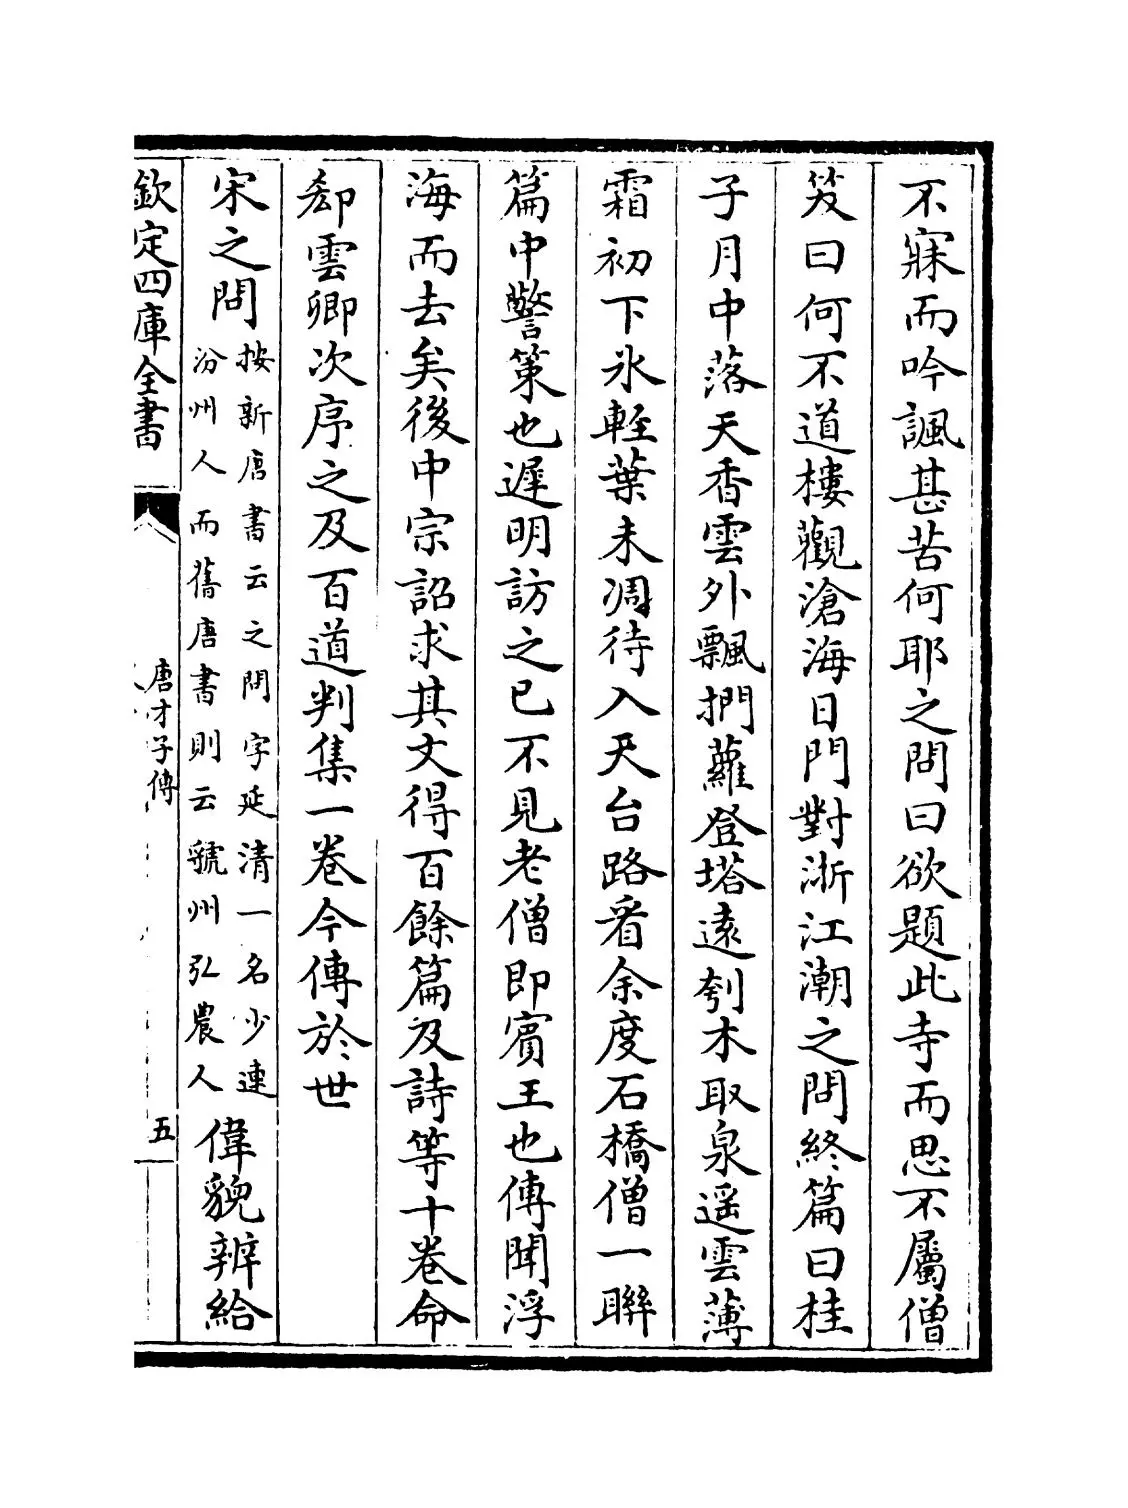 不寐而吟諷甚苦何耶之問曰欲題此寺而思不屬僧
笑曰何不道樓觀滄海日門對浙江潮之問終篇曰桂
子月中落天香雲外飄捫蘿登塔遠刳木取泉遥雲薄
霜初下氷輕葉未凋待入天台路看余度石橋僧一聯
篇中警策也遲明訪之已不見老僧即賓王也傳聞浮
海而去矣後中宗詔求其文得百餘篇及詩等十卷命
郄雲卿次序之及百道判集一卷今傳於世
宋之問
按新唐書云之問字延清一名少連
汾州人而舊唐書則云虢州弘農人
偉貌辨給
欽定四庫全書
唐才子傳
五